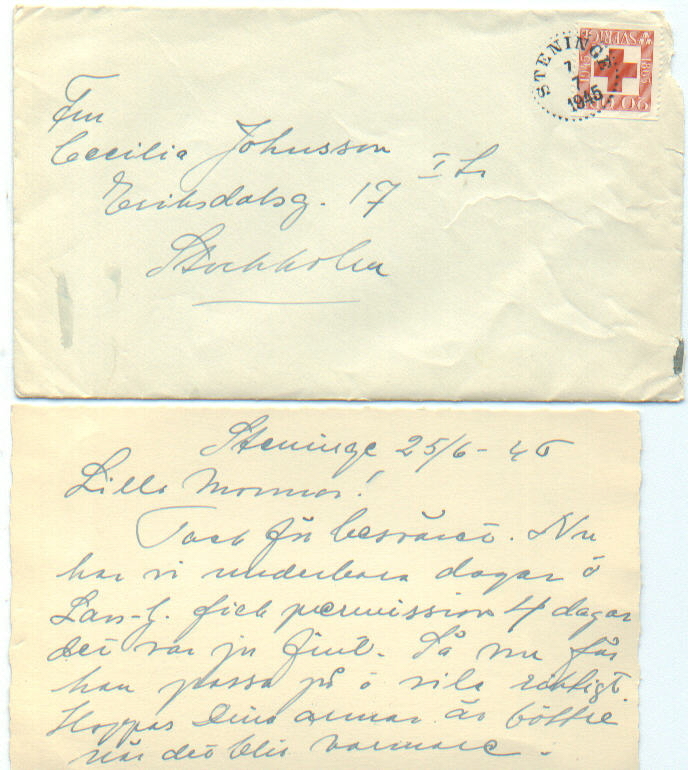 STENINGE
7
7
1945
SVERIGE
1865 1945
20 ÖRE
Fru
Cecilia Johnsson
Eriksdalsg. 17 I Tr
Stockholm
Steninge 25/6-45
Lilla Mormor!
Tack för besväret. Nu
har vi underbara dagar o
Lars-G. fick permission 4 dagar
det var ju fint. Så nu får
han passa på o vila riktigt.
Hoppas Dina armar är bättre
när det blir varmare.